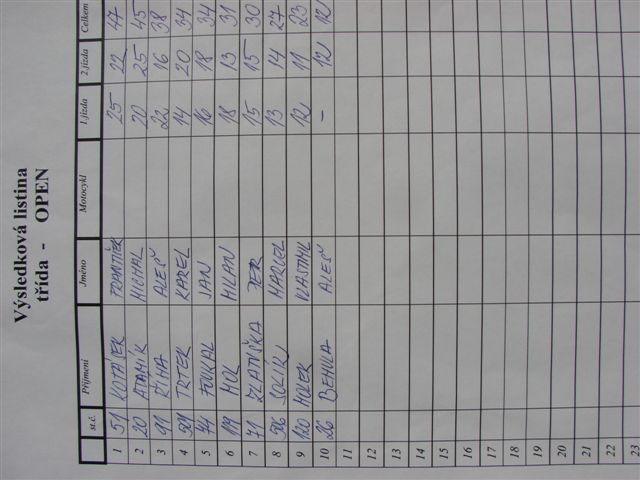 Výsledková listina
třída - OPEN
st.č. Příjmení Jméno Motocykl 1.jízda 2.jízda Celkem
1 51 KOTÁSEK FRANTIŠEK 25 22 47
2 20 ADAMÍK MICHAL 20 25 45
3 91 ŘÍHA ALEŠ 22 16 38
4 TRTEK KAREL 14 20 34
5 74 JAN 16 18 34
6 MOL MILAN 18 13 31
7 71 ZLATUŠKA PETR 15 15 30
8 MARCEL 13 14 27
9 120 HOLEK VLASTIMIL 12 11 23
10 26 BEHULA ALEŠ - 12 12
11
12
13
14
15
16
17
18
19
20
21
22
23